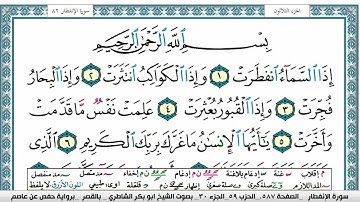 الجزء الثلاثون
سورة الإنفطار ٨٢
بِسْمِ ٱللَّهِ ٱلرَّحْمَٰنِ ٱلرَّحِيمِ
إِذَا ٱلسَّمَآءُ ٱنفَطَرَتْ ١ وَإِذَا ٱلْكَوَاكِبُ ٱنتَثَرَتْ ٢ وَإِذَا ٱلْبِحَارُ
فُجِّرَتْ ٣ وَإِذَا ٱلْقُبُورُ بُعْثِرَتْ ٤ عَلِمَتْ نَفْسٌ مَّا قَدَّمَتْ
وَأَخَّرَتْ ٥ يَٰٓأَيُّهَا ٱلْإِنسَٰنُ مَا غَرَّكَ بِرَبِّكَ ٱلْكَرِيمِ ٦ ٱلَّذِى
سورة الإنفطار . الصفحة ٥٨٧ . الحزب ٥٩ . الجزء ٣٠ . بصوت الشيخ أبو بكر الشاطري . بالقصر . برواية حفص عن عاصم